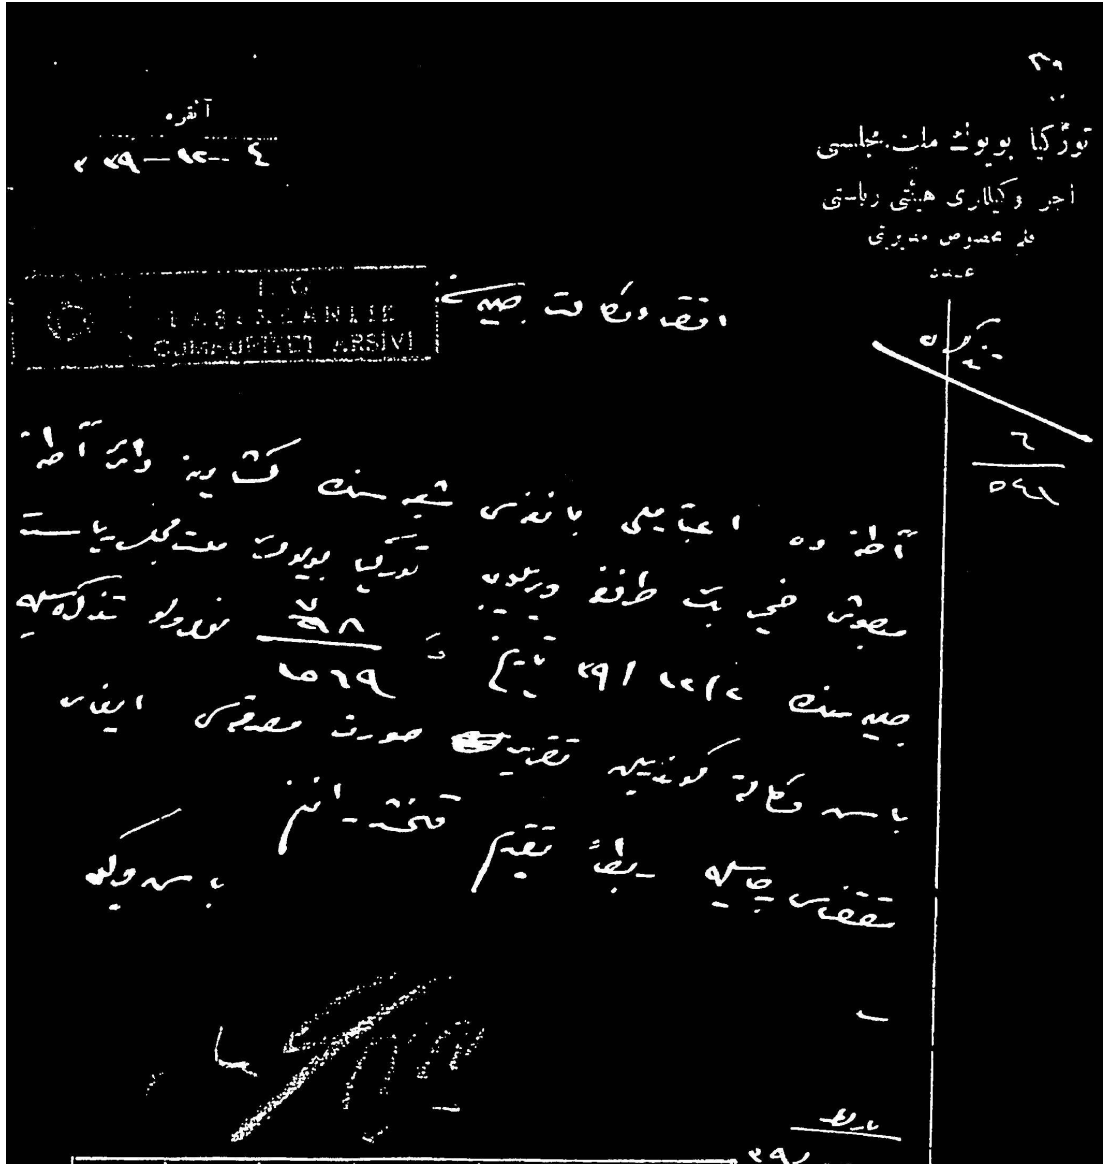 ٣٩
آنقره
٤-١٢-٣٣٩
توركيا بويوك ملت مجلسى
اجرا وكيللرى هيئتى رياستى
قلم مخصوص مديريتى
عدد
T.C.
BAŞBAKANLIK
CUMHURİYET ARŞİVİ
اقتصاد وكالت جليله سنه
٦
٥٤١
آطنه ده اعتبار ملى بانقه سى شعبه سنك كشادينه دائر آطنه
مبعوثى طرفندن ويريلوب توركيا بويوك ملت مجلسى رياست
جليله سنك ٢/١٢/٣٩ تاريخ و ٧٩٨/١٥٦٩ نومرولو تذكره سيله
باش وكالته كوندريلن تقريرك صورت مصدقه سى ايفاى
مقتضاسى رجاسيله ربطاً تقديم قلنمشدر افندم
باش وكيل